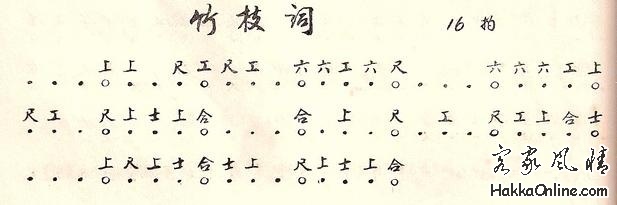 竹枝词 16拍
上上 尺工尺工 六六工六尺 六六六工上
尺工 尺上士上合 合上尺 工 尺工上合士
上尺上士合士上 尺上士上合
客家风情
HakkaOnline.com